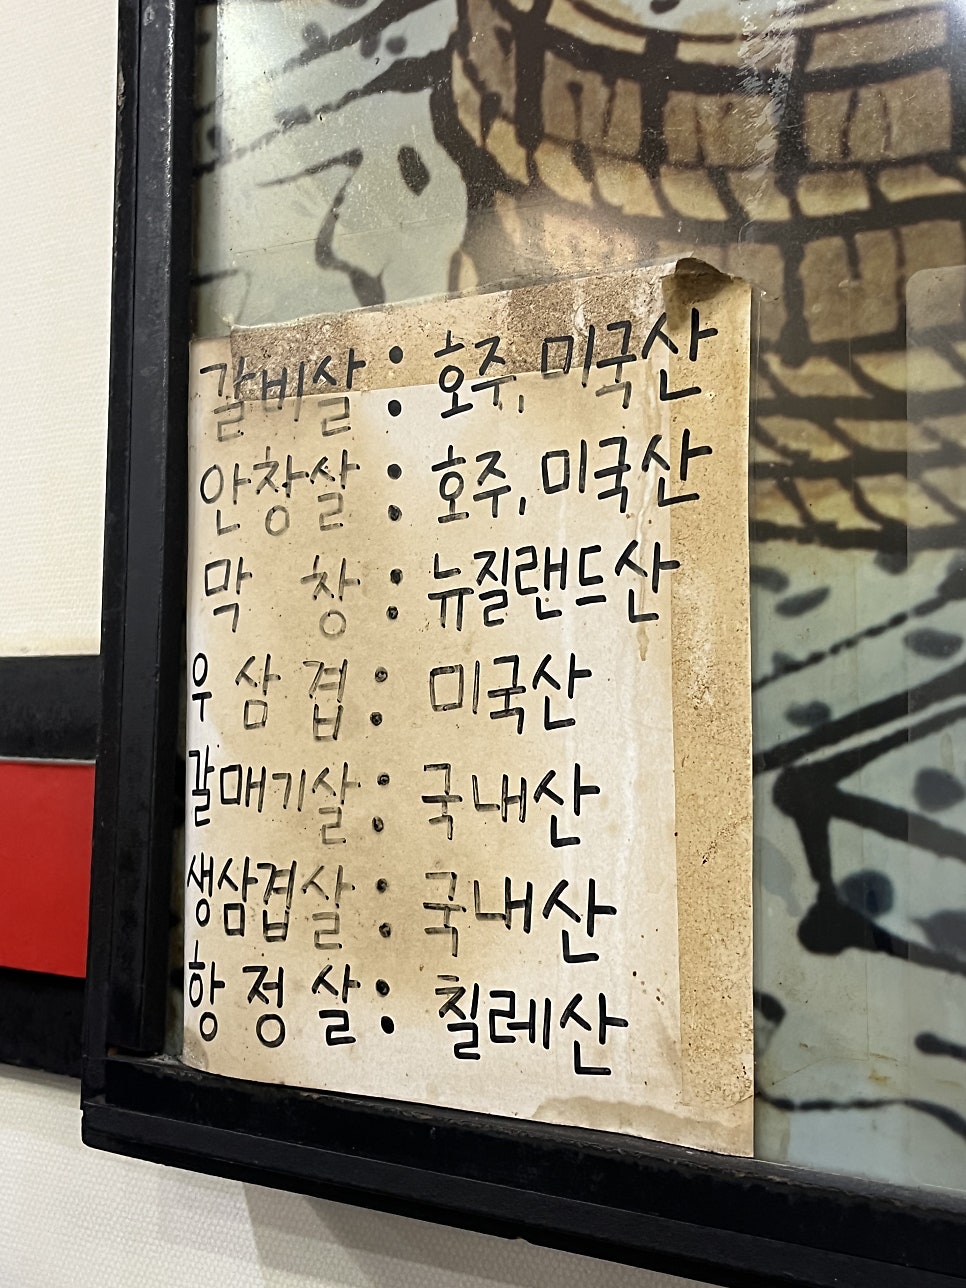 갈비살 : 호주, 미국산
안창살 : 호주, 미국산
막 창 : 뉴질랜드산
우 삼 겹 : 미국산
갈매기살 : 국내산
생삼겹살 : 국내산
항 정 살 : 칠레산